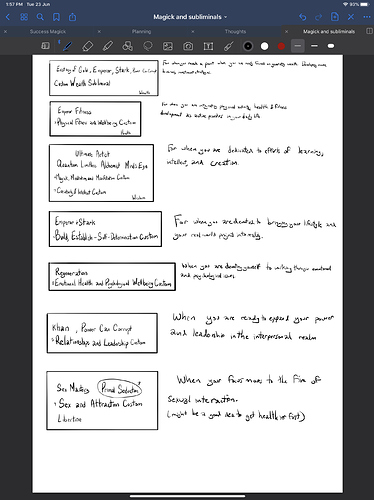 1:57 PM Tue 23 Jun
93%
Magick and subliminals
Success Magick
Planning
Thoughts
Magick and subliminals
Ecstasy of Gold, Emperor, Stark,
Custom Wealth Subliminal
Wealth
For when you reach a point when you
business
Emperor Fitness
Physical Fitness and Wellbeing Custom
Health
For when you are physical health & fitness
development as active in your daily life.
Ultimate Artist
Quantum Limitless Alchemist Mind's Eye
Magick, and Manifestation Custom
Creativity & Intellect Custom
Wisdom
For when you are dedicated to efforts of learning,
intellect, and creation.
Emperor + Stark
Build, Establish - Self-Determination Custom
For when you are devoted to bringing your lifestyle and
your real world projects into reality.
Regeneration
Emotional Health and Psychological Wellbeing Custom
When you are devoting yourself to working through emotional
and psychological issues.
Khan, Power Can Corrupt
Relationships and Leadership Custom
When you are ready to expand your power
and leadership in the interpersonal realm
Sex Mastery Primal Seduction
Sex and Attraction Custom
Libertine
When your focus moves to the Fire of
sexual interaction.
(might be a good idea to get health in first)